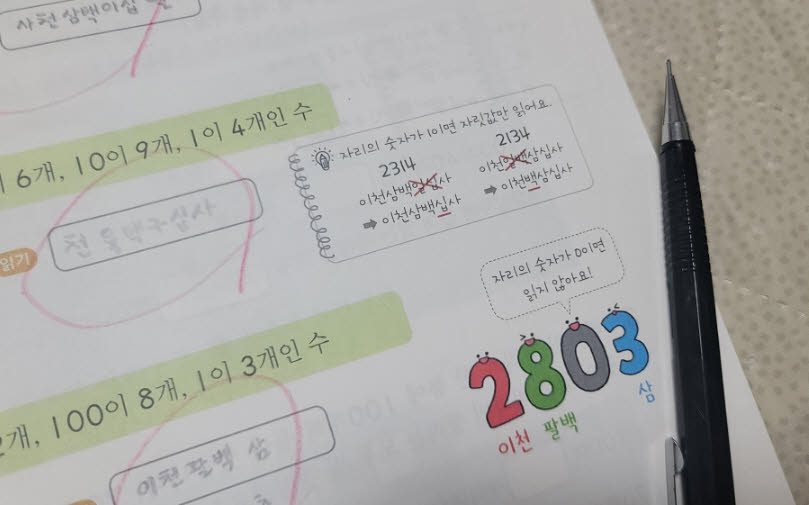 사천삼백이십
6개, 10이 9개, 1이 4개인 수
읽기
천 육백구십사
자리의 숫자가 1이면 자릿값만 읽어요.
2314
이천삼백일십사
➡ 이천삼백십사
2134
이천일백삼십사
➡ 이천백삼십사
자리의 숫자가 0이면
읽지 않아요!
2803
이천 팔백 삼
2개, 100이 8개, 1이 3개인 수
이천팔백 삼